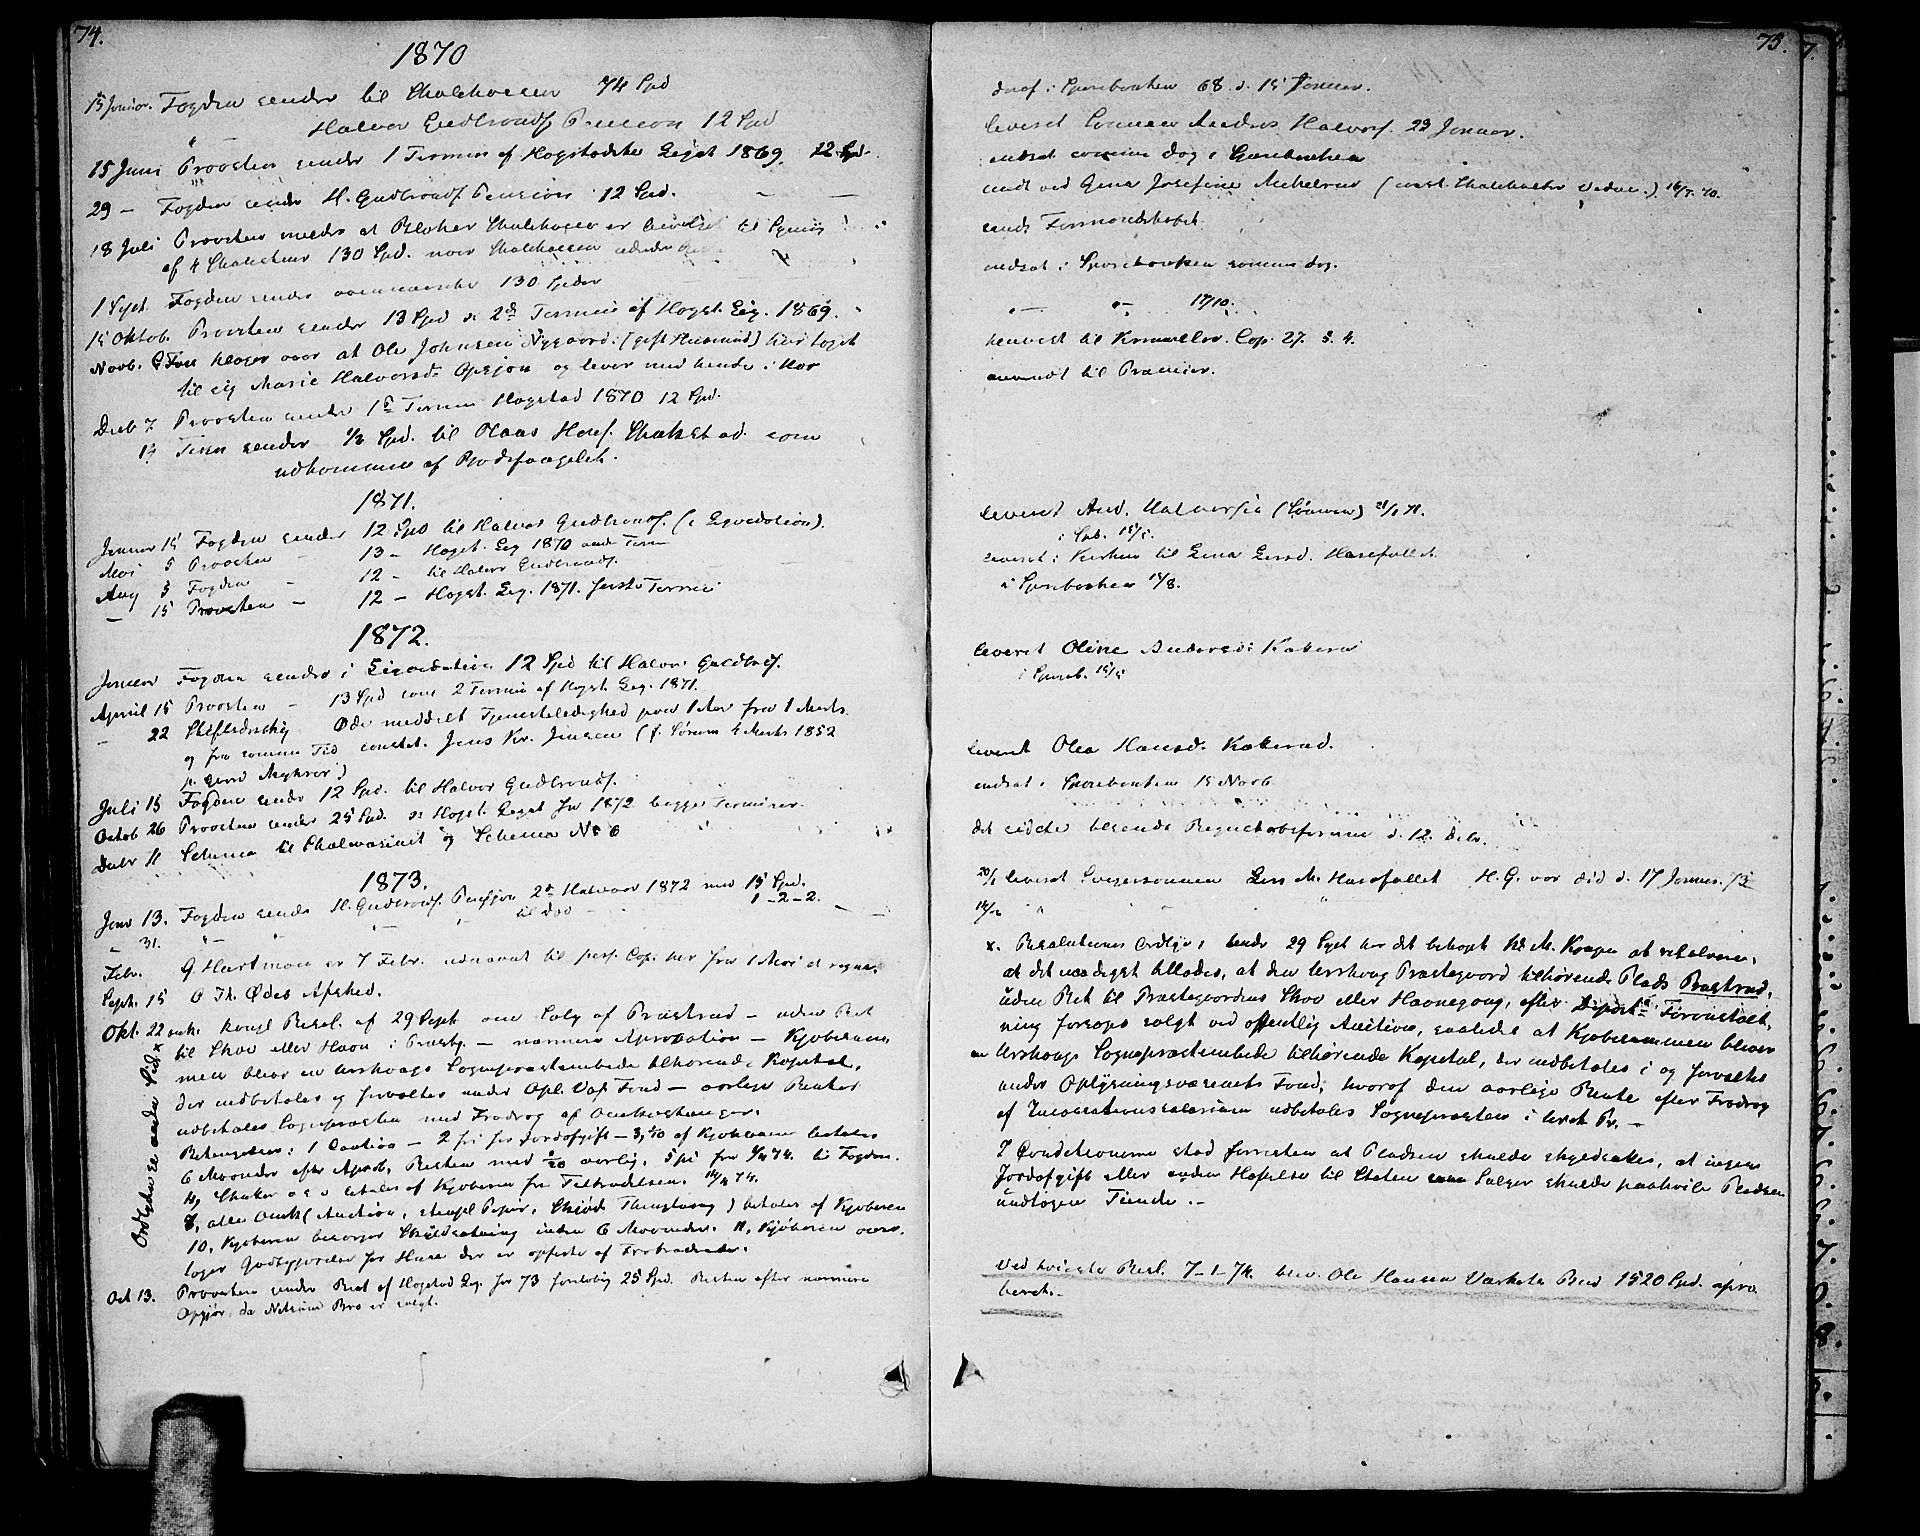 74.
1870
15 Januar. Fogden sender til Skolekassen 74 Spd
" — Halvor Gudbrands. Pension 12 Spd
15 Juni Provsten sender 1 Termin af Hogstadske Legat 1869. 12 Spd.
29 — Fogden sender H. Gudbrands. Pension 12 Spd.
18 Juli Provsten melder at Skolekassen er bevilget til
af 4 130 Spd. naar Skolekassen
1 Sept. Fogden sender ovennævnte 130 Spdr
15 Oktob. Provsten sender 13 Spd 2den Termin af Hogst. Leg. 1869.
Novb. klager over at Ole Johnsen Nygaard (gift Husmand) har taget
til sig Marie Halvorsd. Opsjon og lever med hende i Hor
Decb 7 Provsten sender 1ste Termin Hogstad 1870 12 Spd.
14 sender ½ Spd. til Olaus Hans. som
udkommen af Bodsfængslet.
1871.
Januar 15 Fogden sender 12 Spd til Halvor Gudbrands. (i Liqvidation).
Mai 5 Provsten — 13 — Hogst. Leg 1870 anden Term
Aug 3 Fogden — 12 — til Halvor Gudbrands.
— 15 Provsten — 12 — Hogst. Leg. 1871. første Termin
1872.
Januar Fogden sender i Liqvidation 12 Spd til Halvor Guldbrds.
April 15 Provsten — 13 Spd som 2 Termin af Hogst. Leg. 1871.
— 22 Øde meddelt Tjenesteledighed paa 1 Aar fra 1 Marts.
og fra samme Tid constit. Jens Kr. Jensen (f. Sørum 4 Marts 1852
p. )
Juli 15 Fogden sender 12 Spd. til Halvor Gudbrands.
Octob 26 Provsten sender 25 Spd. Hogst. Legat for 1872 begge Terminer.
Decbr 11 Schema til Skolevæsenet og Schema No 6
1873.
Janv 13. Fogden sender H. Gudbrands. Pension 2det Halvaar 1872 med 15 Spd.
— 31. " — " — " — til Død 1-2-2.
Febr. G. Hartmann er 7 Febr. udnævnt til pers. Cap. her fra 1 Mai at regne.
Septr. 15 O Th. Ødes Afsked.
Okt. 22 ank. kongl Resol. af 29 Sept om Salg af Præstrud — uden Ret
til Skov eller Havn i Præstg. — nærmere Aprobation — Kjøbesum-
men bliver en Urskougs Sognepræstembede tilhørende Kapital,
der indbetales og forvaltes under Opl. Væs. Fond — aarlige Renter
udbetales Sognepræsten med Fradrag af Omkostninger.
Betingelser: 1 Caution — 2 fri for Jordafgift — 3, 1/10 af Kjøbesum betales
6 Maaneder efter Aprob. Resten med 1/20 aarlig. 5 pC fra 14/4 74. til Fogden.
4, Skatter o s v betales af Kjøberen fra Tiltrædelsen. 14/4 74.
8, alle Omk (Auction, stempl Papir, Skjøde Thinglysning) betales af Kjøberen
10. Kjøberen besørger Skyldsætning inden 6 Maaneder. 11, Kjøberen over-
tager Godtgjørelse for Huse der er opførte af Fratrædende.
Oct 13. Provsten sender Rest af Hogstad Leg. for 73 foreløbig 25 Spd. Resten efter nærmere
Opgjør, da Bro er solgt.
Ordlyden se anden Side x
75.
deraf i Sparebanken 68. d. 15 Januar.
leveret Sønnen Anders Halvors. 22 Januar.
indsat samme Dag i Sparebanken
sendt ved Gina Josefine 16/7. 70.
sendt Formandskabet.
indsat i Sparebanken samme Dag.
" — " — 17/10.
henvist til Cop. 27. S. 4.
anvendt til Præmier.
leveret And. Halvorsen (Sønnen) 21/1 71.
i Spb. 15/5.
leveret i Kirken til Lina Larsd. Harefallet
i Sparebanken 15/8.
leveret Oline Andersd: Kakerud
i Spareb. 15/5
leveret Olea Hansd. Kakerud.
indsat i Sparebanken 15 Novb
det sidste Regnskabsformen d. 12. Decbr.
20/1 leveret Svigersønnen Lars M. Harefallet H. G. var død d. 17 Januar. 73
14/2 " "
x. Resolutionens Ordlyd: Under 29 Sept har det behaget Hs M. Kongen at resolvere:
at det naadigst tillades, at den Urskoug Præstegaard tilhørende Plads Præstrud,
uden Ret til Præstegaardens Skov eller Havnegang, efter Depart. Foranstalt-
ning forsøges solgt ved offentlig Auction, saaledes at Kjøbesummen bliver
en Urskougs Sognepræstembede tilhørende Kapital, der indbetales i og forvaltes
under Oplysningsvæsenets Fond, hvoraf den aarlige Rente efter Fradrag
af Incassationssalarium udbetales Sognepræsten i Ursk. Pr. —
I Conditionerne stod forresten at Pladsen skulde skyldsættes, at ingen
Jordafgift eller anden Heftelse til Staten som Sælger skulde paahvile Pladsen
undtagen Tiende. —
Ved høieste Resl. 7-1-74. blev Ole Hansen Værkets Bud 1520 Spd. apro-
beret.